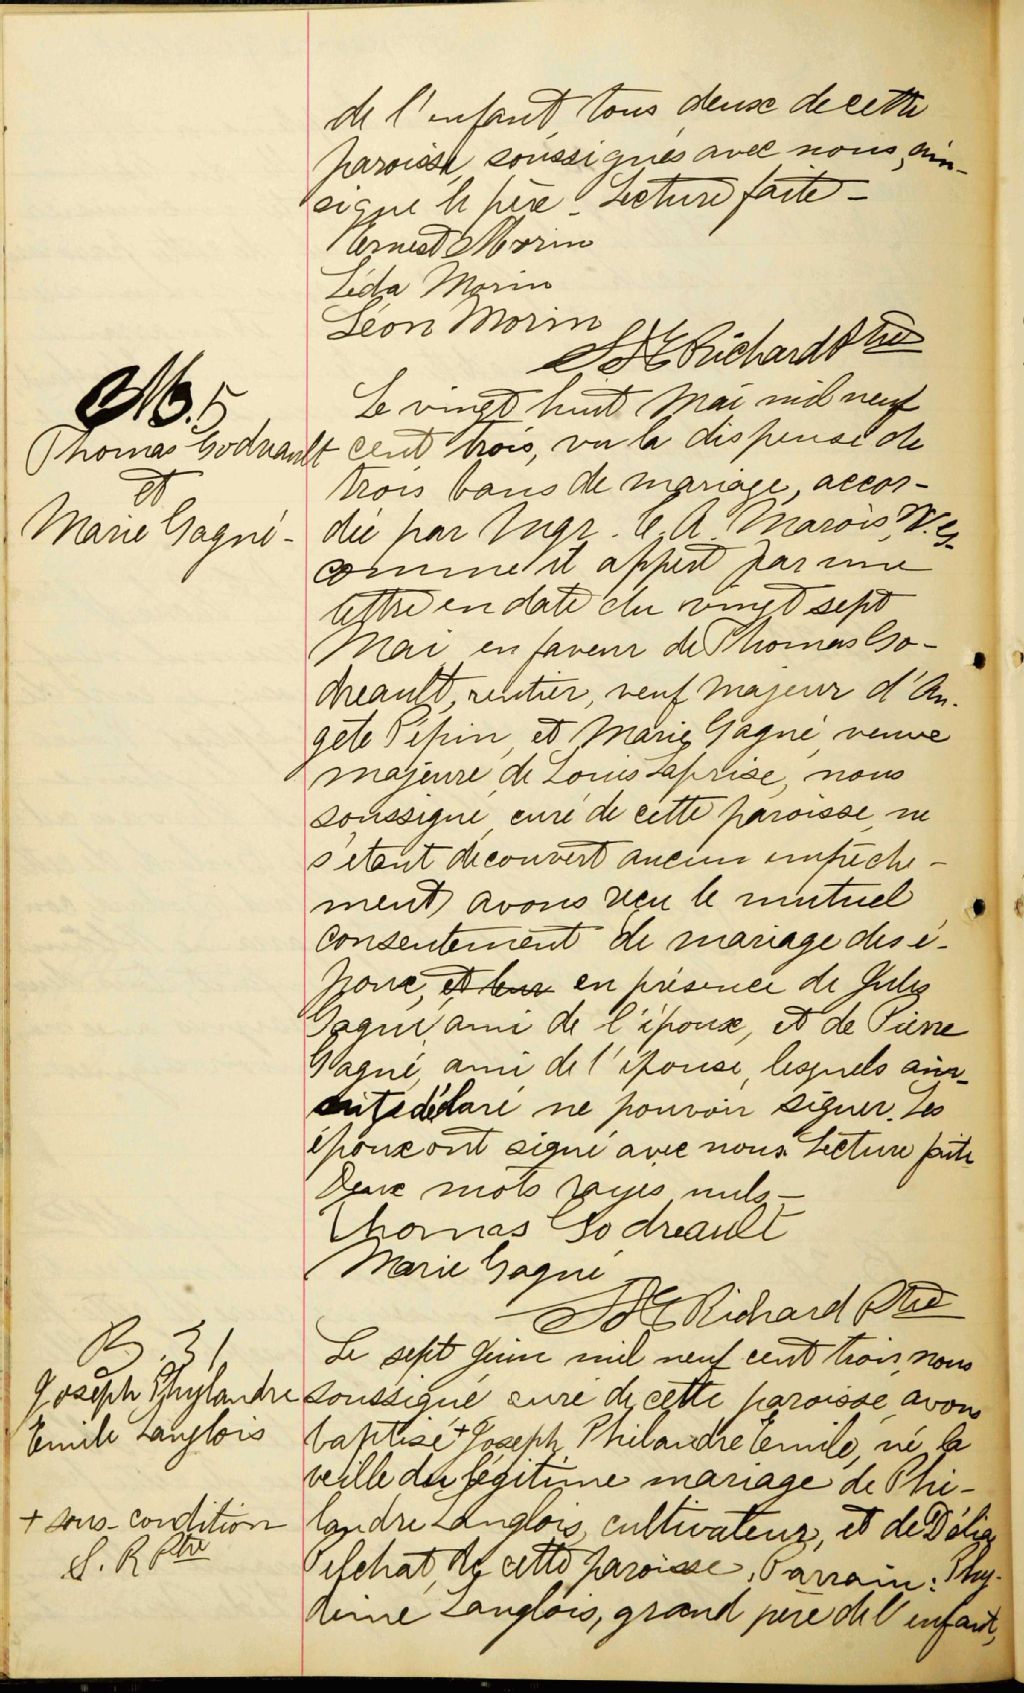 de l'enfant, tous deux de cette
paroisse, soussignés avec nous, ain-
signé le père. Lecture faite -
Ernest Morin
Léda Morin
Léon Morin
Richard Ptre
M. 5
Thomas Godreault
et
Marie Gagné -
Le vingt huit Mai mil neuf
cent trois, vu la dispense de
trois bans de mariage, accor-
dée par Mgr. C. A. Marois, V. G.
comme il appert par une
lettre en date du vingt sept
Mai en faveur de Thomas Go-
dreault, rentier, veuf majeur d'An-
gèle Pépin, et Marie Gagné, veuve
majeure de Louis Laprise, nous
soussigné, curé de cette paroisse, ne
s'étant découvert aucun empêche-
ment avons reçu le mutuel
consentement de mariage des é-
poux, et leur en présence de Jules
Gagné, ami de l'époux, et de Pierre
Gagné, ami de l'épouse, lesquels
déclaré ne pouvoir signer. Les
époux ont signé avec nous. Lecture faite
Deux mots rayés nuls -
Thomas Godreault
Marie Gagné
Richard Ptre
B. 31
Joseph Phylandre
Emile Langlois
+ sous-condition
S. R Ptre
Le sept Juin mil neuf cent trois, nous
soussigné curé de cette paroisse, avons
baptisé + Joseph Philandre Emile, né la
veille du légitime mariage de Phi-
landre Langlois, cultivateur, et de Délia
Pelchat, de cette paroisse. Parrain: Phy-
dime Langlois, grand père de l'enfant,